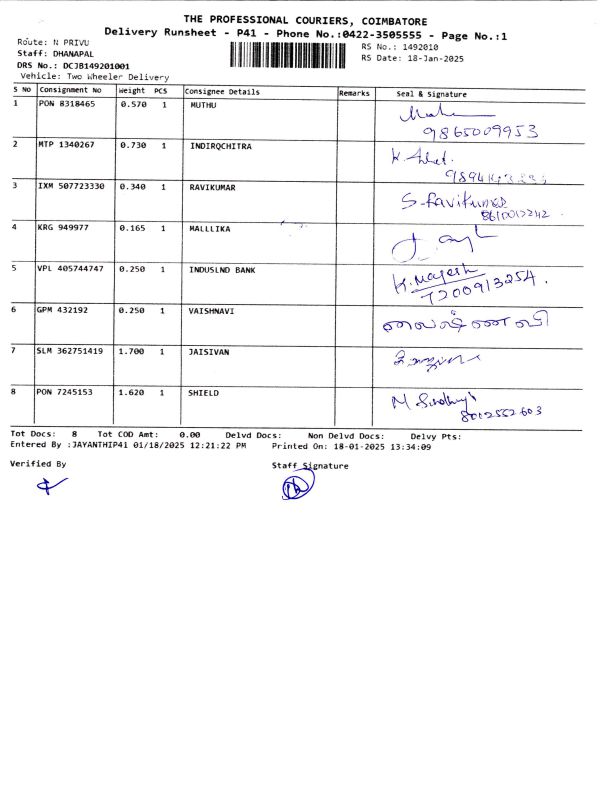 THE PROFESSIONAL COURIERS, COIMBATORE
Delivery Runsheet - P41 - Phone No.:0422-3505555 - Page No.:1
Route: N PRIVU
RS No.: 1492010
Staff: DHANAPAL
RS Date: 18-Jan-2025
DRS No.: DCJB149201001
Vehicle: Two Wheeler Delivery
S No Consignment No Weight PCS Consignee Details Remarks Seal & Signature
1 PON 8318465 0.570 1 MUTHU
9865009953
2 MTP 1340267 0.730 1 INDIRQCHITRA
3 IXM 507723330 0.340 1 RAVIKUMAR S. Ravikumar
4 KRG 949977 0.165 1 MALLLIKA
5 VPL 405744747 0.250 1 INDUSLND BANK K. Magesh
7200913254.
6 GPM 432192 0.250 1 VAISHNAVI வைஷ்ணவி
7 SLM 362751419 1.700 1 JAISIVAN
8 PON 7245153 1.620 1 SHIELD
8012552603
Tot Docs: 8 Tot COD Amt: 0.00 Delvd Docs: Non Delvd Docs: Delvy Pts:
Entered By :JAYANTHIP41 01/18/2025 12:21:22 PM Printed On: 18-01-2025 13:34:09
Verified By Staff Signature